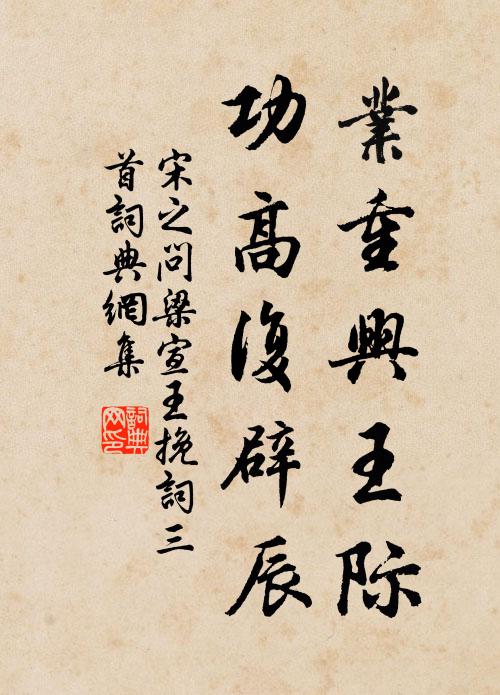 業重興王際
功高復辟辰
宋之問梁宣王挽詞三
首詞典網集
詞典
网印